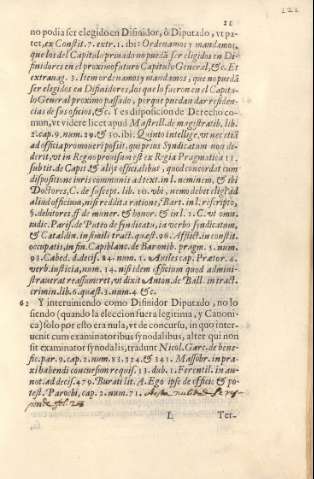 no podia ser elegido en Difinidor, ò Diputado, vt pa-
tet, ex Constit. 7. extr. 1. ibi: Ordenamos y mandamos,
que los del Capitulo priuado no puedā ser eligidos en Di-
finidores en el proximo futuro Capitulo General, &c. Et
extrauag. 3. Item ordenamos y mandamos, que no puedā
ser elegidos en Difinidores, los que lo fueron en el Capitu-
lo General proximo passado, porque puedan dar residen-
cias de sus oficios, &c. Y es disposicion de Derecho co-
mun, vt videre licet apud Mastrell. de magistratib. lib.
2. cap. 9. num. 29. & 30. ibi: Quinto intellige, vt nec etiā
ad officia promoueri possit, qui prius Syndicatum non de-
derit, vt in Regno prouisum est ex Regia Pragmatica 11.
sub tit. de Capit. & alijs officialibus, quod concordat cum
dispositione iuris communis ad text. in l. neminem, & ibi
Doctores, C. de suscept. lib. 10. vbi, nemo debet eligi ad
aliud officium, nisi reddita ratione, Bart. in l. rescripto,
§. debitores. ff. de muner. & honor. & in l. 2. C. vt omn.
iudic. Paris. de Puteo de syndicatu, in verbo Syndicatum,
& Cataldin. in simili tract. quæst. 26. Afflict. in constit.
occupatis, in fin. Capiblanc. de Baronib. pragm. 5. num.
93. Cabed. d. decis. 84. num. 1. Auiles cap. Prætor. 4.
verb. iusticia, num. 14. nisi idem officium quod admini-
strauerat reassumeret, vt dixit Anton. de Ball. in tract.
crimin. lib. 6. quæst. 3. num. 4. &c.
62 Y interuiniendo como Difinidor Diputado, no lo
siendo (quando la eleccion fuera legitima, y Canoni-
ca) solo por esto era nula, vt de concursu, in quo inter-
uenit cum examinatoribus synodalibus, alter qui non
sit examinator synodalis, tradunt Nicol. Garc. de bene-
fic. par. 9. cap. 2. num. 83. 324. & 341. Massobr. in pra-
xi habendi concursum requis. 13. dub. 1. Farentil. in an-
not. ad decis. 479. Burati lit. A. Ego ipse de offic. & po-
test. Parochi, cap. 2. num. 71.
L Ter-